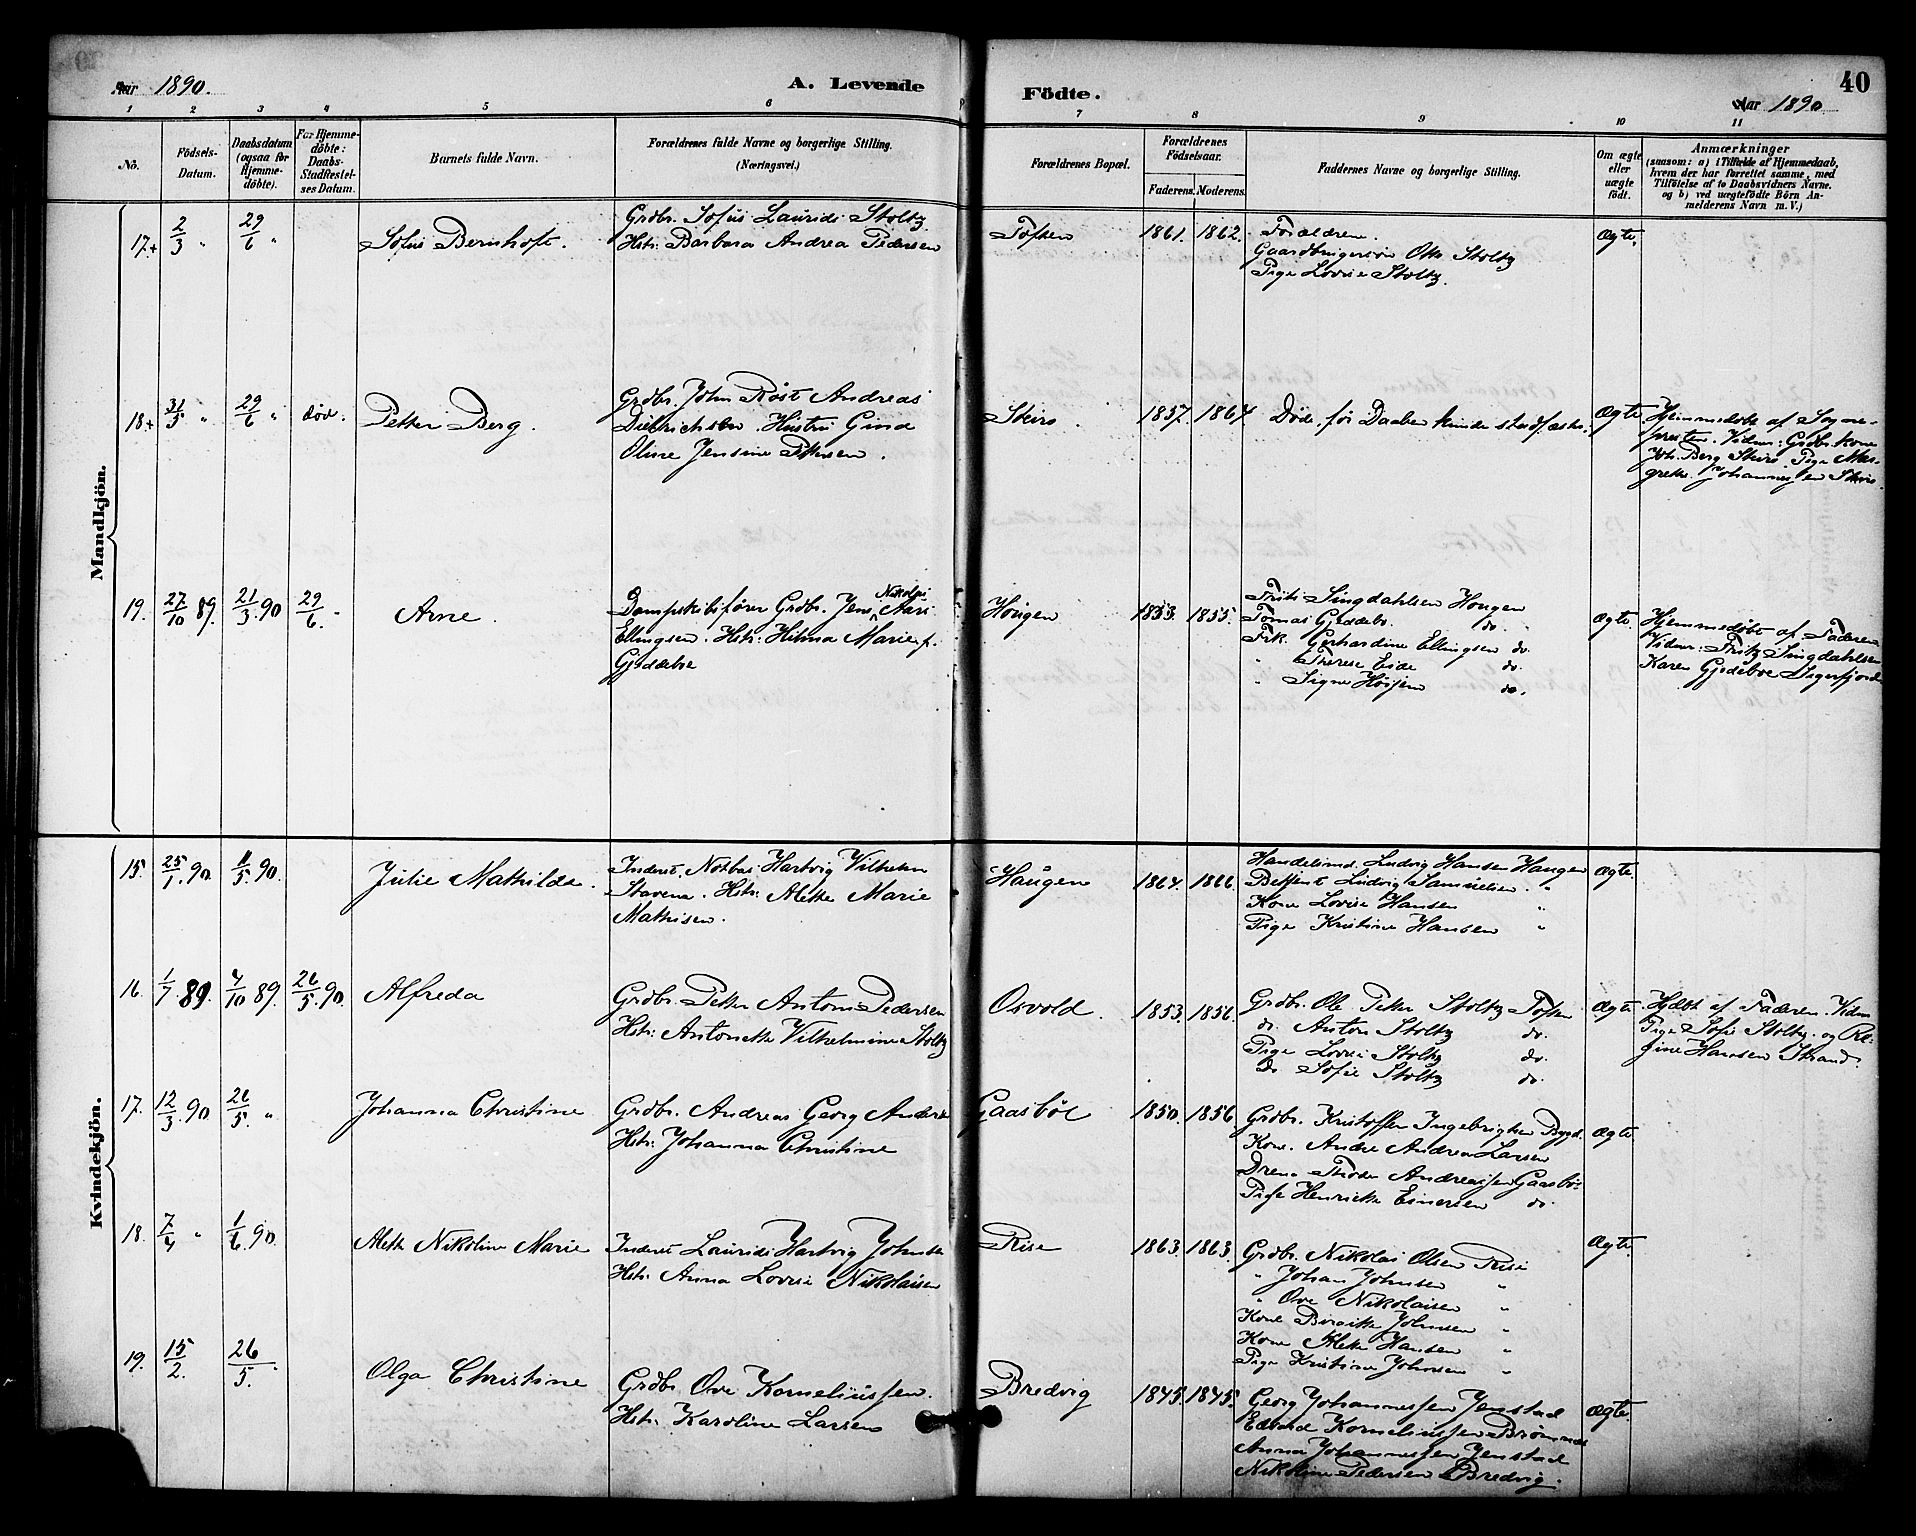 Aar 1890.
A. Levende
Födte.
Aar 1890
40
1 2 3 4 5 6 7 8 9 10 11
No.
Födsels-
Datum.
Daabsdatum
(ogsaa for
Hjemme-
döbte).
For Hjemme-
döbte:
Daabs-
Stadfæstel-
ses Datum.
Barnets fulde Navn.
Forældrenes fulde Navne og borgerlige Stilling.
(Næringsvei.)
Forældrenes Bopæl.
Forældrenes
Födselsaar.
Faderens. Moderens.
Faddernes Navne og borgerlige Stilling.
Om ægte
eller
uægte
födt.
Anmærkninger
(saasom: a) i Tilfælde af Hjemmedaab,
hvem der har forrettet samme, med
Tilföielse af to Daabsvidners Navne.
og b) ved uægtefödte Börn An-
melderens Navn m. V.)
Mandkjön.
17+ 2/3 " 29/6 "
Sofus Bernhoft.
Grdbr. Sofus Laurids Stoltz
Hstr. Barbara Andrea Pedersen
Toften
1861. 1862.
Forældrene.
Gaardbrugersøn Otto Stoltz
Pige Lovise Stoltz.
Ægte.
18+ 31/5 " 29/6 " død.
Petter Berg.
Grdbr. John Røst Andreas
Diedrichsen. Hustru Gina
Oline Jensine Pettersen.
Skiro
1857. 1864
Døde før Daaben kunde stadfæstes.
Ægte
Hjemmedøbt af Sogne-
presten. Vidner: Grdbr. kone
Joh. Berg Skiro. Pige Mar-
grethe Johannessen Skiro.
19. 27/10 89. 21/3 90 29/6 "
Arne.
Dampskibsfører Grdbr. Jens Nikolai
Ellingsen. Hstr: Hilma Marie f.
Gjeddebo
Hougen
1853. 1855.
Frits Lingdahlsen Hougen
Tomas Gjeddebo do.
Frk. Gerhardine Ellingsen do
" Therese Eide do.
" Signe do.
Ægte.
Hjemmedøbt af Faderen
Vidner: Fritz Lingdahlsen
Karen Gjeddeboe Sigerfjord
Kvindekjön.
15. 25/1. 90 11/5. 90.
Julie Mathilde.
Inderst, Notbas Hartvig Vilhelm
Stavena. Hstr: Alette Marie
Mathisen.
Haugen
1864. 1866.
Handelsmd. Ludvig Hansen Haugen
Betjent Ludvig Samuelsen. "
Kone Lovise Hansen "
Pige Kristine Hansen "
Ægte.
16. 1/7. 89. 4/10 89. 26/5. 90.
Alfreda
Grdbr. Petter Anton Pedersen
Hstr: Antonette Vilhelmine Stoltz
Osvold.
1853. 1856.
Grdbr. Ole Peter Stoltz Toften
do. Anton Stoltz do.
Pige Lovise Stoltz do.
Do Sofie Stoltz do.
Ægte
Hjdbt af Faderen. Vidn.
Pige Sofie Stoltz. og Re-
gine Hansen Strand.
17. 12/3. 90 26/5. "
Johanna Christine
Grdbr. Andreas Georg
Hstr: Johanna Christine
Gaasbøl
1850. 1856.
Grdbr. Kristoffer Ingebrigtsen Bygd.
Kone. Andrea Larsen
Dreng Andreassen Gaasbøl
Pige Henriette Einersen do.
Ægte
18. 7/4 " 1/6. 90.
Alette Nikoline Marie
Inderst Laurids Hartvig Johnsen
Hstr: Anna Lovise Nikolaisen
Rise
1863. 1863.
Grdbr. Nikolai Olsen Rise
" Johan Johnsen "
" Ove Nikolaisen "
Kone Johnsen "
Kone Alette Hansen "
Pige Kristine Johnsen "
Ægte.
19. 15/2. 26/5. "
Olga Christine
Grdbr. Ove Korneliussen.
Hstr: Karoline Larsen
Bredvig
1845. 1845.
Georg Johannessen Jenstad
Edvard Korneliussen
Anna Johannessen Jenstad
Nikoline Pedersen Bredvig.
Ægte.